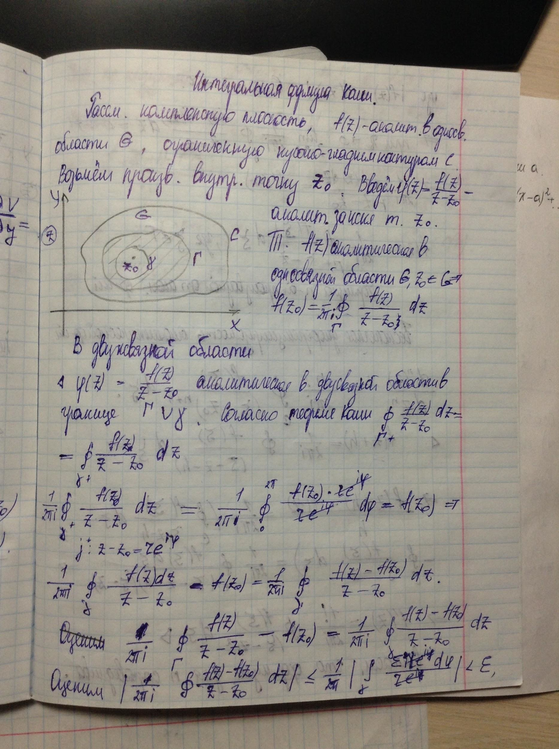 Интегральная формула Коши.
Рассм. комплексную плоскость, f(z)-аналит. в односв.
области G, ограниченную кусочно-гладким контуром C
Возьмём произв. внутр. точку z₀. Введём φ(z)=f(z)/(z-z₀) -
аналит. за искл. т. z₀.
y G
(z) C
z₀ γ Г
x
Т. f(z) аналитическое в
односвязной области G, z₀ ∈ G ⇒
f(z₀) = 1/2πi ∮_Г f(z)/(z-z₀) dz
В двухсвязной области
φ(z) = f(z)/(z-z₀) аналитическое в двусвязной области в
границе Г ∨ γ. Согласно теореме Коши ∮_Г+ f(z)/(z-z₀) dz=
= ∮_γ+ f(z)/(z-z₀) dz
1/2πi ∮_γ+ f(z₀)/(z-z₀) dz = 1/2πi ∮_0^2π f(z₀)·re^iφ/re^iφ dφ = f(z₀) ⇒
γ: z-z₀=re^iφ
1/2πi ∮_γ f(z)dz/(z-z₀) - f(z₀) = 1/2πi ∮_γ f(z)-f(z₀)/(z-z₀) dz.
Оценим 1/2πi ∮_Г f(z)/(z-z₀) - f(z₀) = 1/2πi ∮_γ f(z)-f(z₀)/(z-z₀) dz
Оценим |1/2πi ∮ f(z)-f(z₀)/(z-z₀) dz| ≤ 1/2π |∫_γ dφ/re^iφ| < ε,